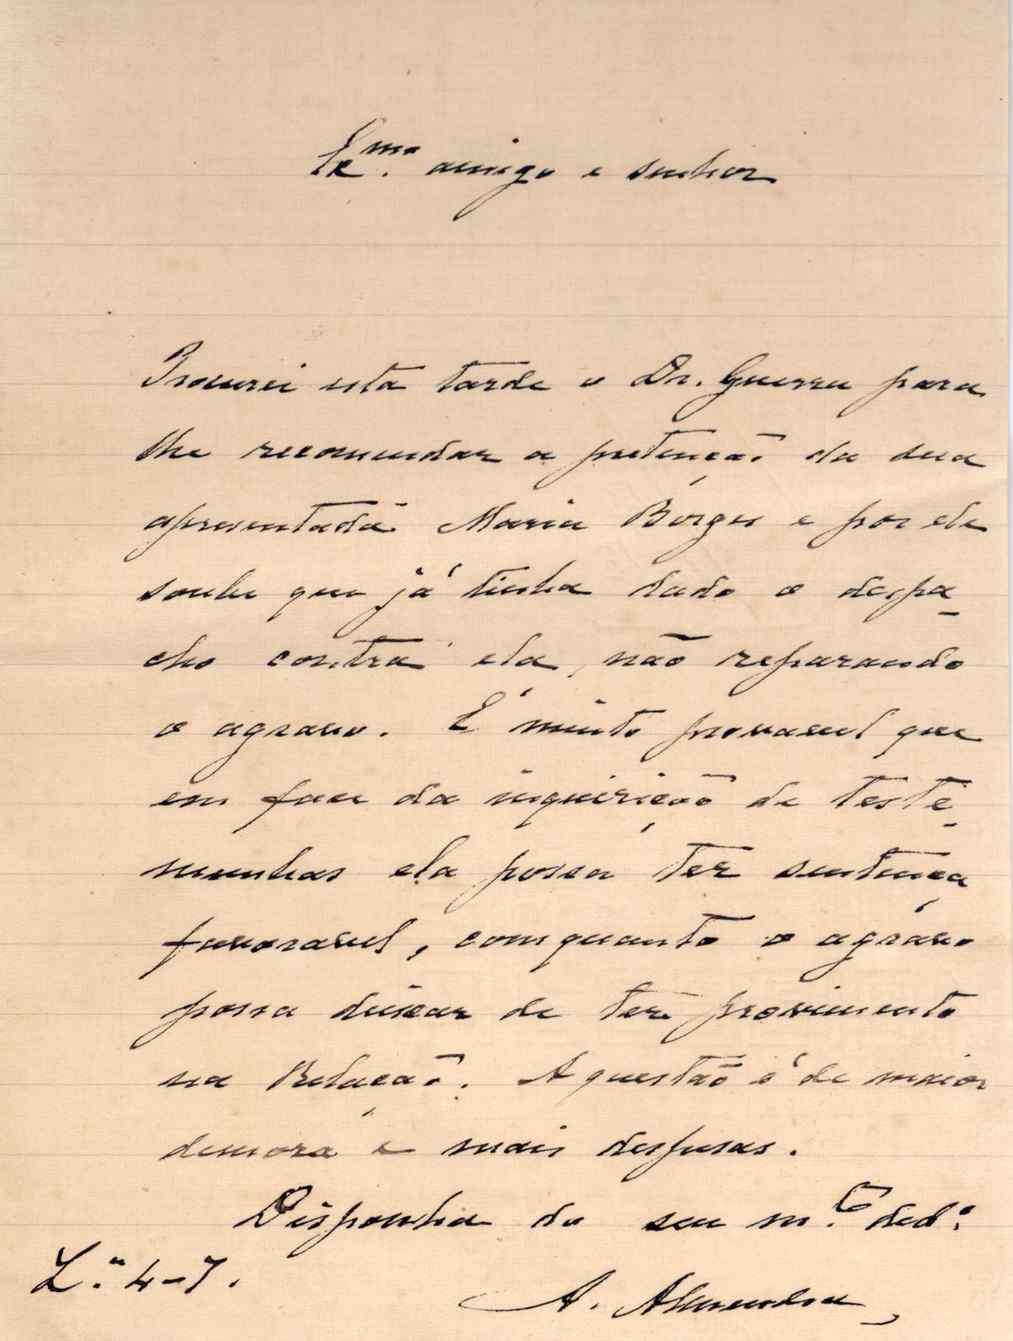 Ex.mo amigo e senhor
Procurei esta tarde o Dr. Guerra para
lhe recomendar a pretenção da sua
apresentada Maria Borges e por ele
soube que já tinha dado o despa-
cho contra ela, não reparando
o agravo. É muito provavel que
em face da inquirição de teste-
munhas ela possa ter sentença
favoravel, comquanto o agravo
possa deixar de ter provimento
na Relação. A questão é de maior
demora e mais despesas.
Disponha do seu m.to ded.o
L.a 4-7.
A.